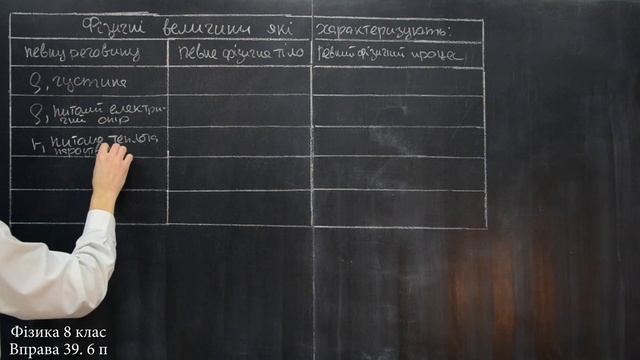 Фізичні величини які характеризують:
певну речовину
певне фізичне тіло
певний фізичний процес
ρ, густина
ρ, питомий електри-
чний опір
r, питома теплота
Фізика 8 клас
Вправа 39. 6 п